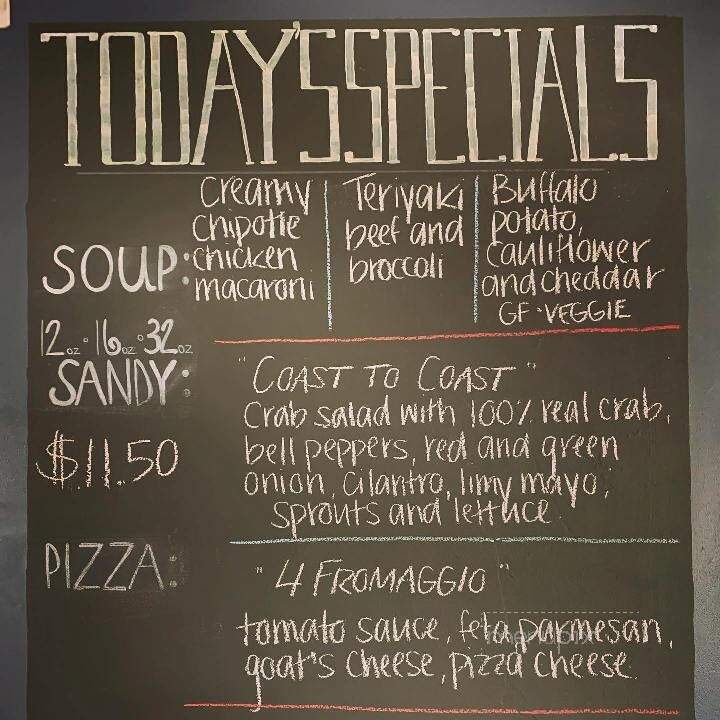 TODAY'S SPECIALS
SOUP:
12oz · 16oz · 32oz
Creamy
chipotle
chicken
macaroni
Teriyaki
beef and
broccoli
Buffalo
potato,
cauliflower
and cheddar
GF · VEGGIE
SANDY:
$11.50
"COAST TO COAST"
Crab salad with 100% real crab,
bell peppers, red and green
onion, cilantro, limy mayo,
sprouts and lettuce
PIZZA:
"4 FROMAGGIO"
tomato sauce, feta, parmesan,
goat's cheese, pizza cheese